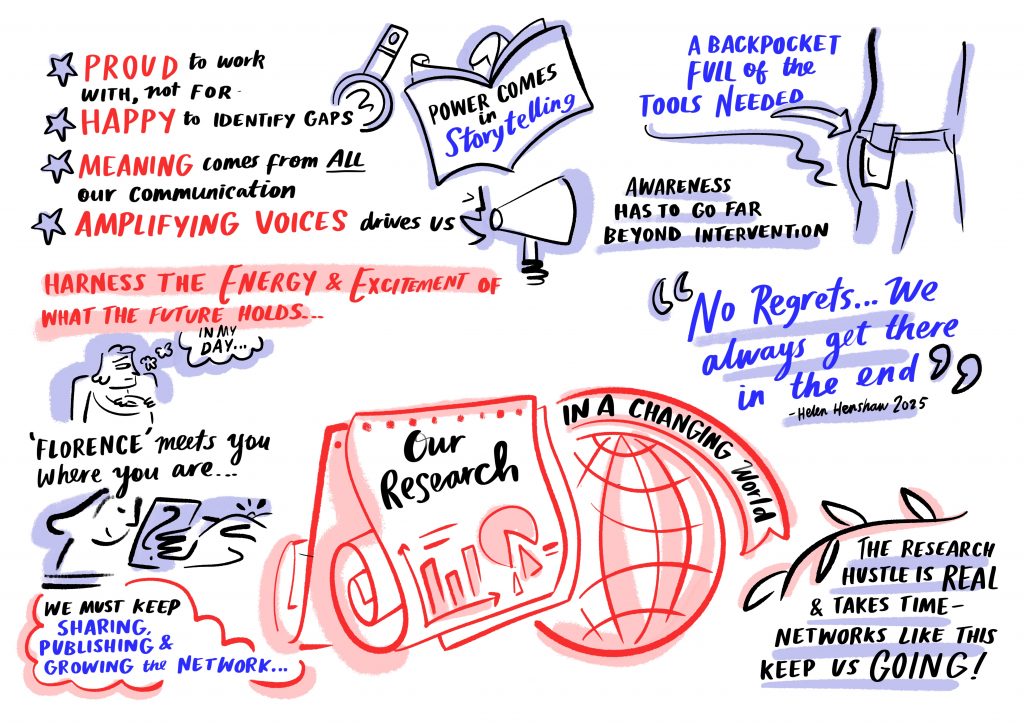 PROUD to work
WITH, not FOR-
HAPPY to IDENTIFY GAPS
MEANING comes from ALL
our communication
AMPLIFYING VOICES drives us
POWER COMES
in
Storytelling
A BACKPOCKET
FULL of the
TOOLS NEEDED
AWARENESS
HAS TO GO FAR
BEYOND INTERVENTION
HARNESS THE ENERGY & EXCITEMENT OF
WHAT THE FUTURE HOLDS...
IN MY
DAY...
'FLORENCE' meets you
where you are...
WE MUST KEEP
SHARING,
PUBLISHING &
GROWING the NETWORK...
Our
Research
IN A CHANGING World
“No Regrets... We
always get there
in the end”
-Helen Henshaw 2025
THE RESEARCH
HUSTLE IS REAL
& TAKES TIME-
NETWORKS LIKE THIS
KEEP US GOING!